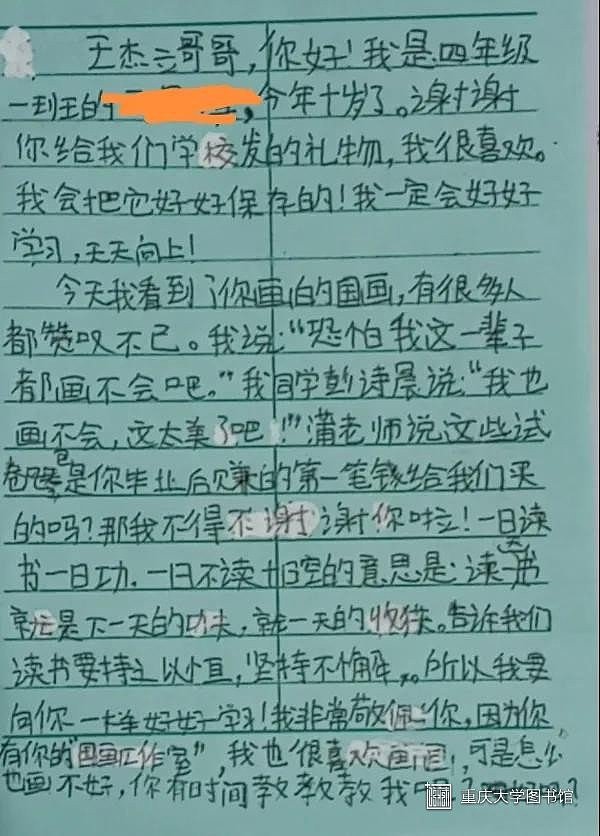 王杰云哥哥，你好！我是四年级
一班王的 今年十岁了。谢谢
你给我们学校发的礼物，我很喜欢。
我会把它好好保存的！我一定会好好
学习，天天向上！
今天我看到了你画的国画，有很多人
都赞叹不已。我说：“恐怕我这一辈子
都画不会吧。”我同学彭诗晨说：“我也
画不会，这太美了吧！”蒲老师说这些试
卷 包是你毕业后赚的第一笔钱给我们买
的吗？那我不得不谢谢你啦！一日读
书一日功，一日不读十日空的意思是：读一天书
就是下一天的功夫，就一天的收获。告诉我们
读书要持之以恒，坚持不懈。所以我要
向你一样好好学习！我非常敬佩你，因为你
有你的“国画工作室”，我也很喜欢画画，可是怎么
也画不好，你有时间教教教我吧？
重庆大学图书馆